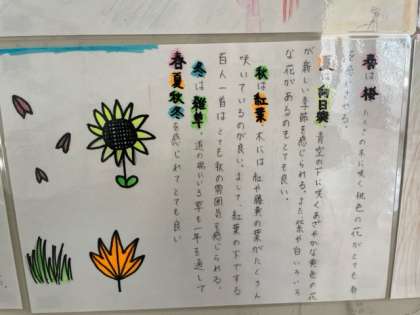 春は桜 たくさんの木に咲く桃色の花がとても春
を感じさせる。
夏は向日葵 青空の下に咲くあざやかな黄色の花
が新しい季節を感じられる。また紫や白いろいろ
な花があるのもとても良い。
秋は紅葉 木には紅や橙黄の葉がたくさん
咲いているのが良い。まして、紅葉の下でする
百人一首はとても秋の雰囲気を感じられる。
冬は雑草。道の端にいる草も一年を通して
春夏秋冬を感じれてとても良い